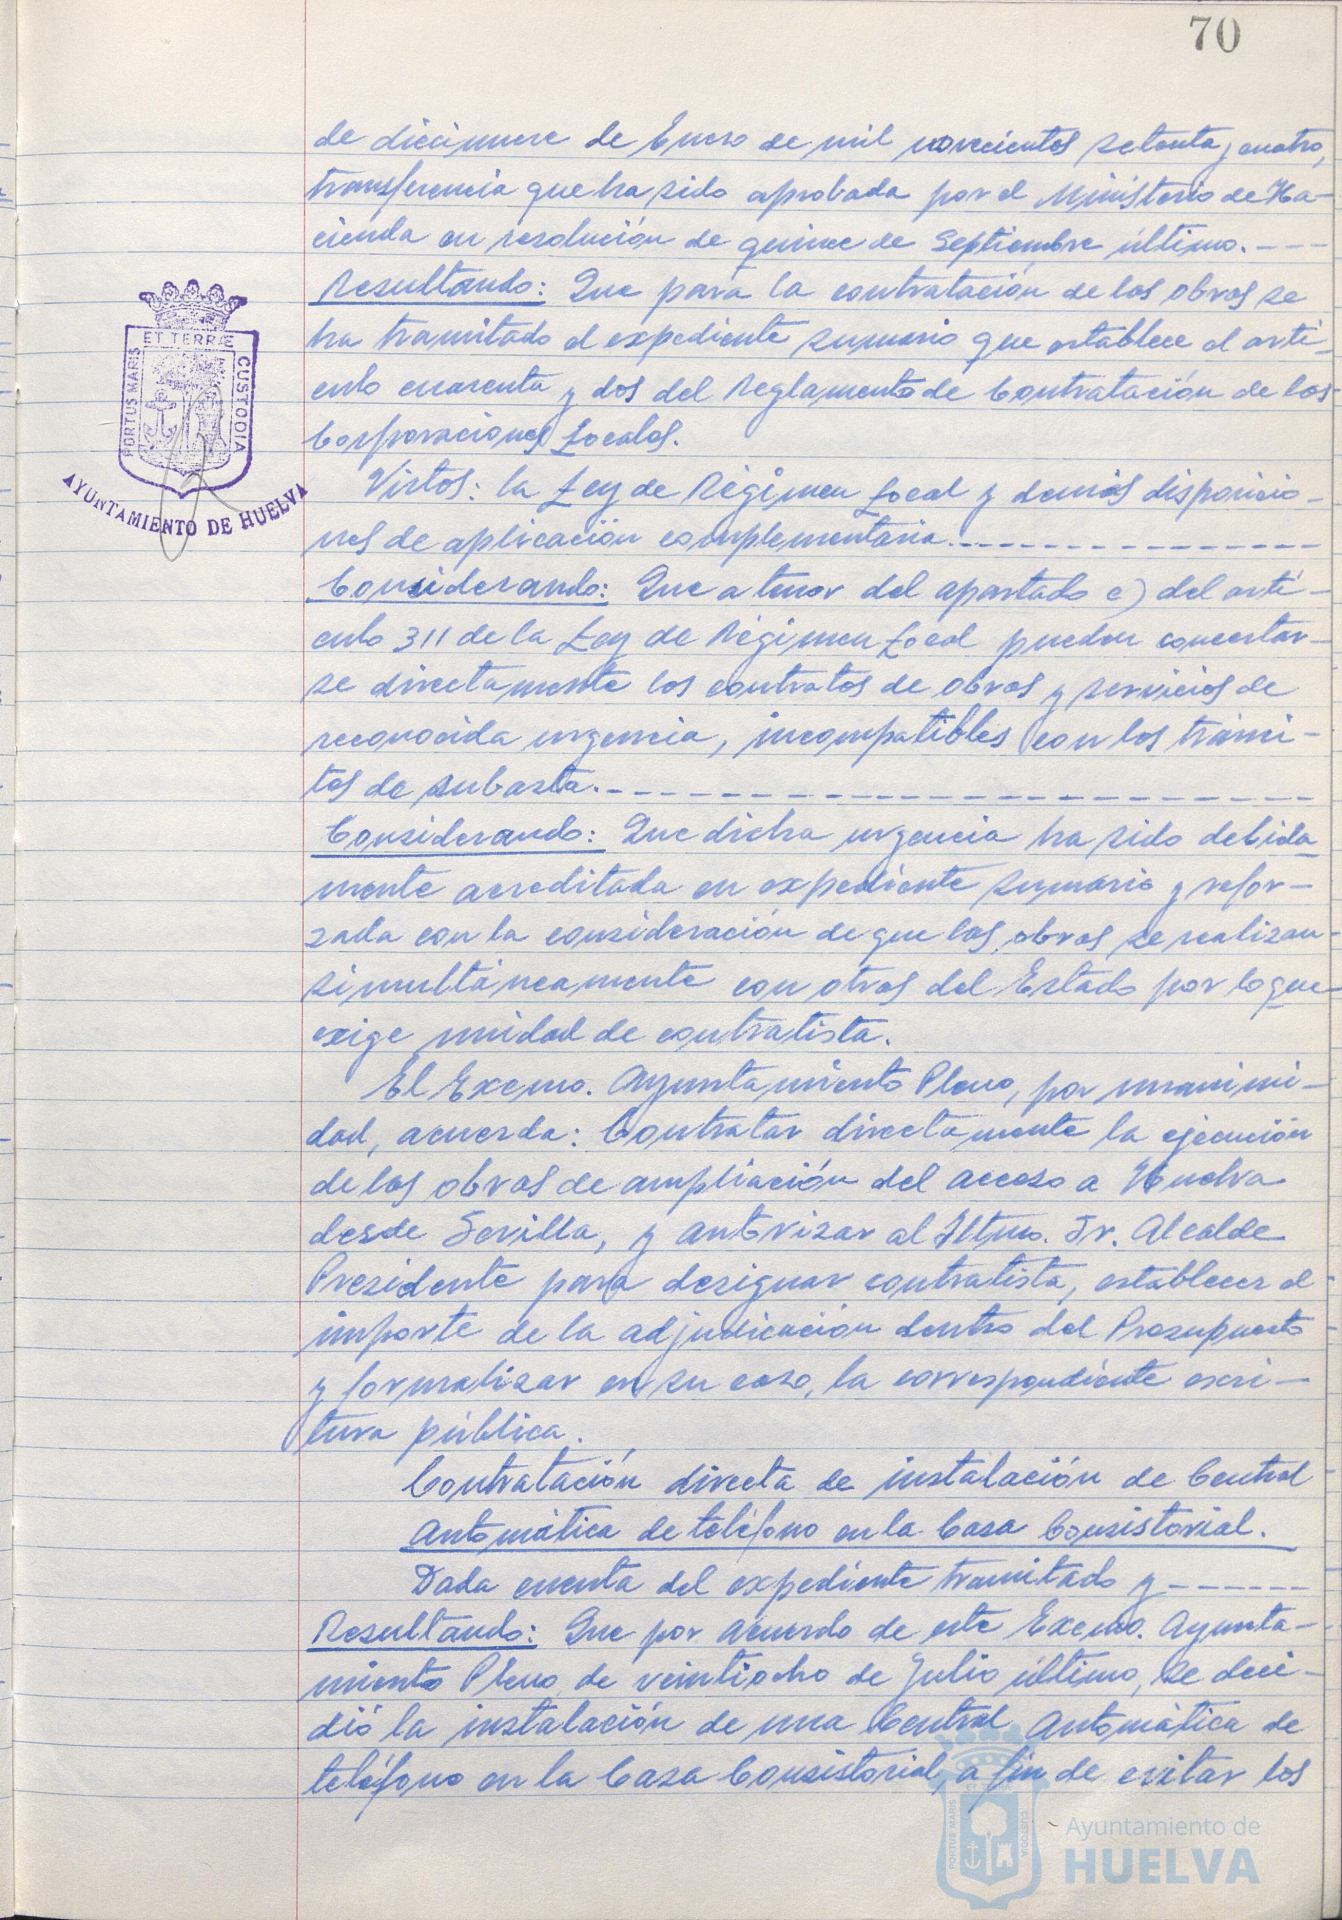 70
de diecinueve de Enero de mil novecientos setenta y cuatro,
transferencia que ha sido aprobada por el Ministerio de Ha-
cienda en resolución de quince de Septiembre último.---
Resultando: Que para la contratación de las obras se
ha tramitado el expediente sumario que establece el artí-
culo cuarenta y dos del Reglamento de Contratación de las
Corporaciones Locales.
Vistos: la Ley de Régimen Local y demás disposicio-
nes de aplicación complementaria.--------------
Considerando: Que a tenor del apartado c) del artí-
culo 311 de la Ley de Régimen Local pueden concertar-
se directamente los contratos de obras y servicios de
reconocida urgencia, incompatibles con los trámi-
tes de subasta.----------------------
Considerando: Que dicha urgencia ha sido debida-
mente acreditada en expediente sumario y refor-
zada con la consideración de que las obras se realizan
simultáneamente con otras del Estado por lo que
exige unidad de contratista.
El Excmo. Ayuntamiento Pleno, por unanimi-
dad, acuerda: Contratar directamente la ejecución
de las obras de ampliación del acceso a Huelva
desde Sevilla, y autorizar al Iltmo. Sr. Alcalde
Presidente para designar contratista, establecer el
importe de la adjudicación dentro del Presupuesto
y formalizar en su caso, la correspondiente escri-
tura pública.
Contratación directa de instalación de Central
Automática de teléfono en la Casa Consistorial.
Dada cuenta del expediente tramitado y------
Resultando: Que por acuerdo de este Excmo. Ayunta-
miento Pleno, de veintiocho de Julio último, se deci-
dió la instalación de una Central Automática de
teléfono en la Casa Consistorial, a fin de evitar los
PORTUS MARIS
ET TERRÆ
CUSTODIA
AYUNTAMIENTO DE HUELVA
PORTUS MARIS
CUSTODIA
Ayuntamiento de
HUELVA